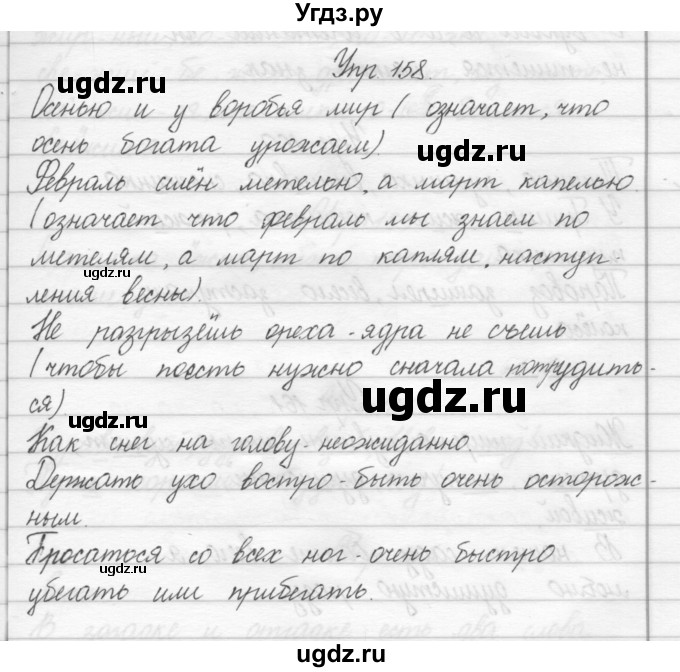 Угдз.ру
Упр 158.
Осенью и у воробья мир ( означает, что
осень богата урожаем).
Февраль силён метелью, а март капелью.
(означает что февраль мы знаем по
метелям, а март по каплям, наступ-
ления весны).
Не разгрызёшь ореха - ядра не съешь
(чтобы поесть нужно сначала потрудить-
ся)
Как снег на голову - неожиданно.
Держать ухо востро - быть очень осторож-
ным.
Бросаться со всех ног - очень быстро
убегать или прибегать.
ugdz.ru
ugdz.ru
ugdz.ru
ugdz.ru
ugdz.ru
ugdz.ru
ugdz.ru
ugdz.ru
ugdz.ru